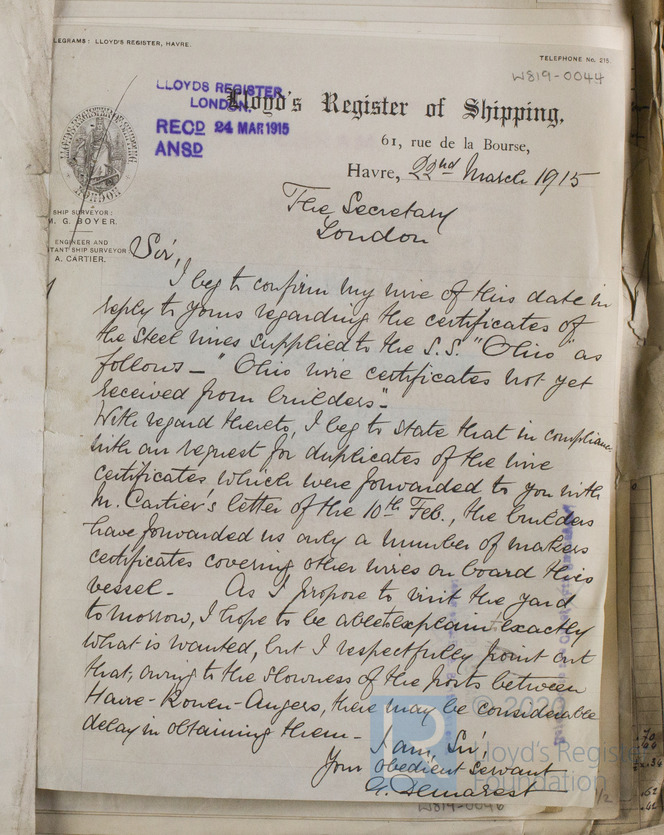 LEGRAMS: LLOYD'S REGISTER, HAVRE.
TELEPHONE No. 215.
W819-0044
LLOYDS REGISTER
LONDON.
RECD 24 MAR 1915
ANSD
Lloyd's Register of Shipping,
61, rue de la Bourse,
Havre, 22nd March 1915
LLOYD'S REGISTER OF SHIPPING
LONDON
SHIP SURVEYOR:
M. G. BOYER.
ENGINEER AND
TANT SHIP SURVEYOR
A. CARTIER.
The Secretary
London
Sir,
I beg to confirm my wire of this date in
reply to yours regarding the certificates of
the steel wires supplied to the S.S. "Ohio" as
follows – "Ohio wire certificates not yet
received from builders".
With regard thereto, I beg to state that in compliance
with our request for duplicates of the wire
certificates, which were forwarded to you with
M. Cartier's letter of the 10th Feb., the builders
have forwarded us only a number of makers
certificates covering other wires on board this
vessel – As I propose to visit the yard
tomorrow, I hope to be able to explain exactly
what is wanted, but I respectfully point out
that, owing to the slowness of the posts between
Havre-Rouen-Angers, there may be considerable
delay in obtaining them –
I am, Sir,
Your obedient servant
G. Demarest
W819-0046
1/2
© 2020
Lloyd's Register
Foundation